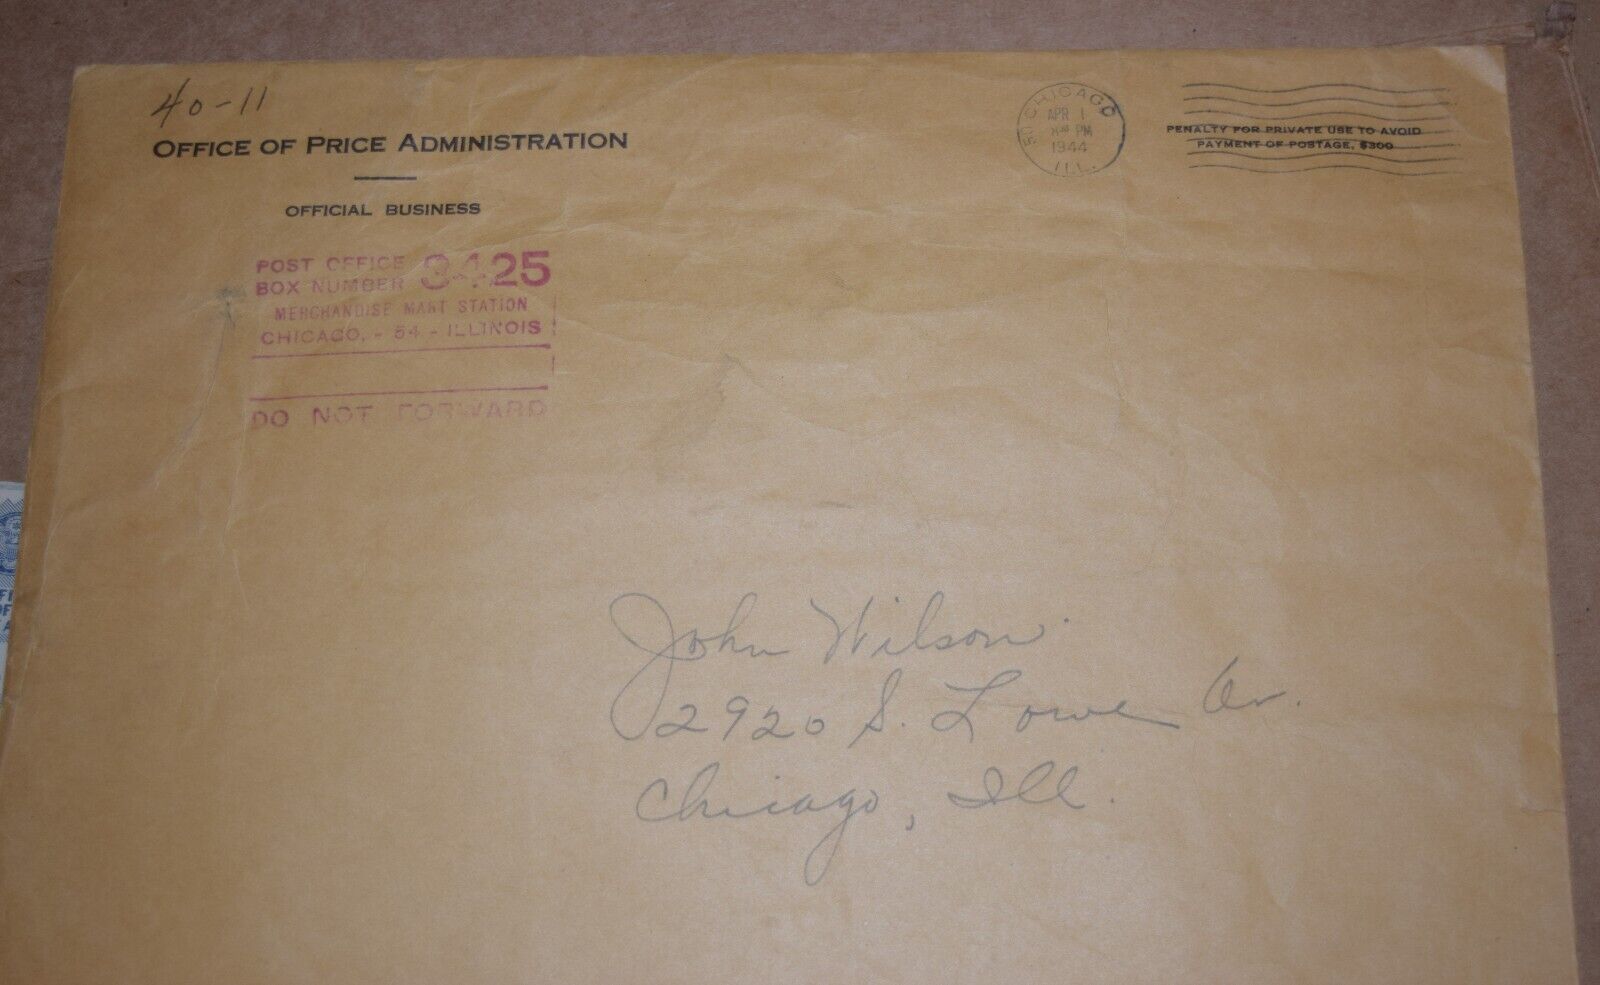 40-11
OFFICE OF PRICE ADMINISTRATION
OFFICIAL BUSINESS
POST OFFICE
BOX NUMBER 3425
MERCHANDISE MART STATION
CHICAGO, - 54 - ILLINOIS
DO NOT FORWARD
CHICAGO
APR 1
PM
1944
ILL.
PENALTY FOR PRIVATE USE TO AVOID
PAYMENT OF POSTAGE, $300
John Wilson
2920 S. Lowe Av.
Chicago, Ill.